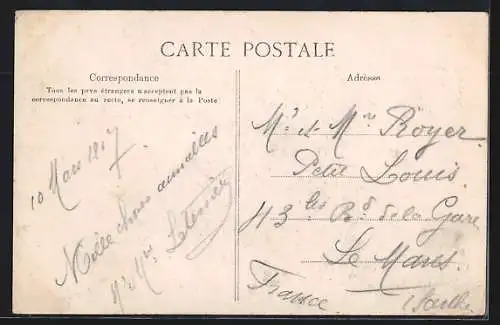 CARTE POSTALE
Correspondance
Tous les pays étrangers n'acceptent pas la
correspondance au recto, se renseigner à la Poste
10 Mars
Mille choses aimables
Adresse
Mr et Mme Royer
Petit Louis
43 Bd de la Gare
Le Mans.
France
(Sarthe